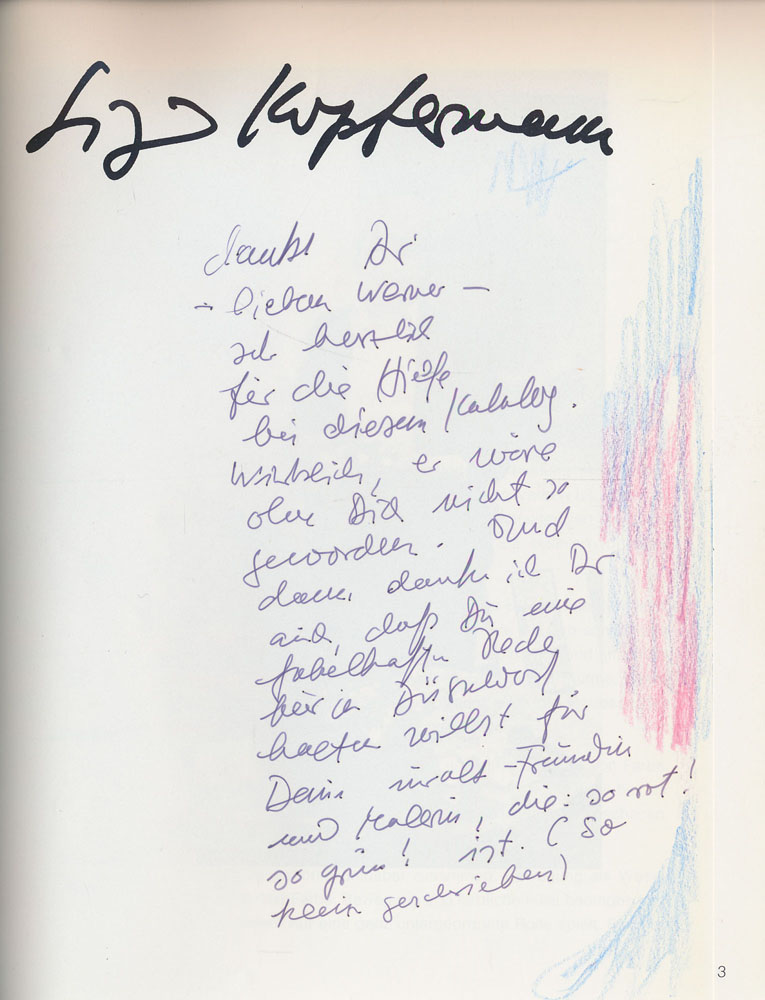 Sigrid Kopfermann
dankt Dir
- lieber Werner -
sehr herzlich
für die Hilfe
bei diesem Katalog.
Wirklich, er wäre
ohne Dich nicht so
geworden. Und
dann danke ich Dir
auch, daß Du eine
fabelhafte Rede
hier in Düsseldorf
halten willst für
Deine uralt-Freundin
und Malerin, die: so rot!
so grün! ist. (So
klein geschrieben)
3